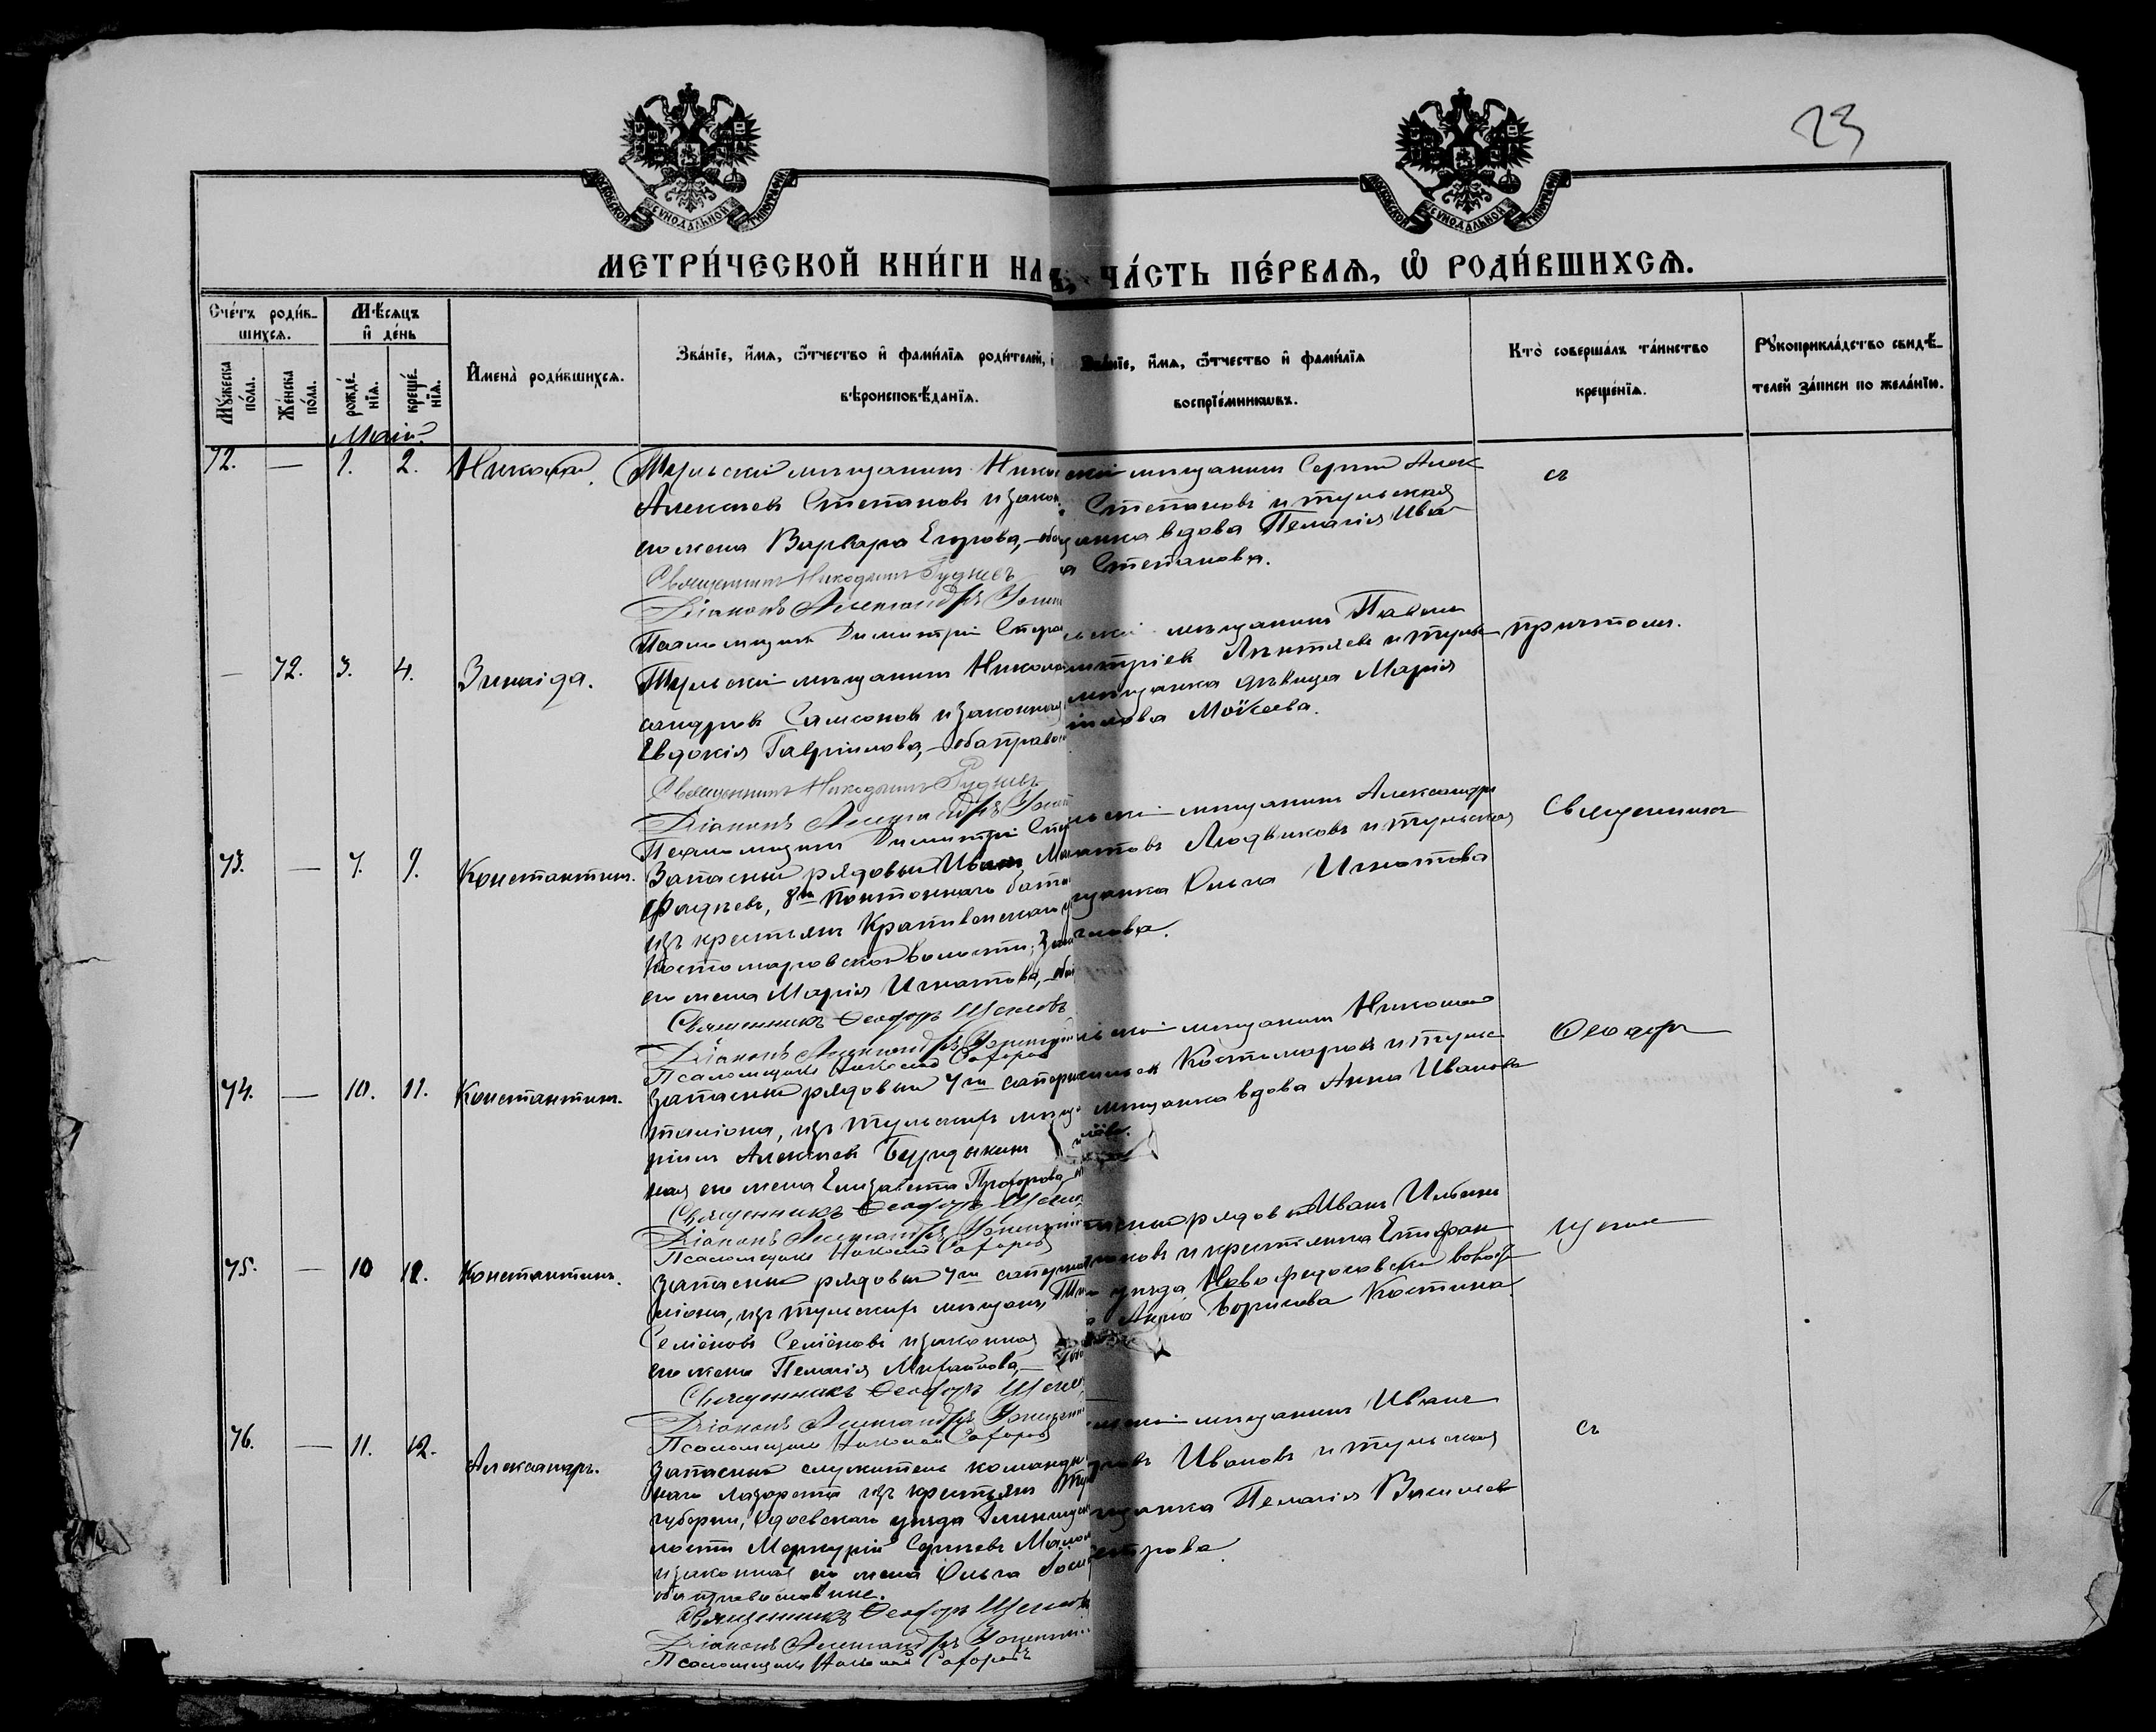 23
МОСКОВСКОЙ СѴНОДАЛЬНОЙ ТИПОГРАФІИ
МОСКОВСКОЙ СѴНОДАЛЬНОЙ ТИПОГРАФІИ
МЕТРИ́ЧЕСКОЙ КНИ́ГИ НА
ЧА́СТЬ ПЕ́РВАѦ, Ѽ РОДИ́ВШИХСѦ.
Сче́тъ роди́в-
шихсѧ.
Мѣ́сѧцъ
и҆ де́нь
Мꙋ́жеска по́ла.
Же́нска по́ла.
рожде́нїѧ.
креще́нїѧ.
И҆мена̀ роди́вшихсѧ.
Зва́нїе, и҆́мѧ, ѻ҆́тчество и҆ фами́лїѧ роди́телей,
вѣроисповѣ́данїѧ.
Зва́нїе, и҆́мѧ, ѻ҆́тчество и҆ фами́лїѧ
воспрїе́мниковъ.
Кто̀ соверша́лъ та́инство
креще́нїѧ.
Рꙋкоприкла́дство свидѣ́-
телей за́писи по жела́нїю.
Май.
72. — 1. 2. Николай.
Тульскій мѣщанинъ Нико
Алексѣевъ Степановъ и закон
его жена Варвара Егорова, — оба
Священникъ Никодимъ Рудневъ
Діаконъ Александръ
Псаломщикъ Димитрій
скій мѣщанинъ Сергій Алек
Степановъ и тульская
щанка вдова Пелагія Ива
а Степанова.
съ
— 72. 3. 4. Зинаида.
Тульскій мѣщанинъ Никола
сандровъ Самсоновъ и законная
Евдокія Гавріилова, — оба право
Священникъ Никодимъ Рудневъ
Діаконъ Александръ
Псаломщикъ Димитрій
мѣщанинъ Павелъ
митріевъ Лаптевъ и туль
мѣщанка дѣвица Марія
Моисеева.
причтомъ.
73. — 7. 9. Константинъ.
Запасный рядовый Иванъ
Фадѣевъ, 8го Понтоннаго бата
изъ крестьянъ Крапивенскаго у
Костомаровской волости; зак
его жена Марія Игнатова, — оба
Священникъ Ѳеодоръ Щегловъ
Діаконъ Александръ
Псаломщикъ Николай Сафоновъ
скій мѣщанинъ Александръ
Людвиковъ и тульская
щанка Ольга Игнатова
Священникъ
74. — 10. 11. Константинъ.
Запасный рядовый 7го сапер
таліона, изъ тульскихъ мѣща
Алексѣевъ
ная его жена Елизавета Прохорова
Священникъ Ѳеодоръ Щегло
Діаконъ Александръ
Псаломщикъ Николай Сафоновъ
скій мѣщанинъ Николай
Костомаровъ и тульс
мѣщанка вдова Анна Иванова
Ѳеодоръ
75. — 10 12. Константинъ.
Запасный рядовый 7го сапер
ліона, изъ тульскихъ мѣщанъ,
Семёновъ Семёновъ и законная
его жена Пелагія Михайлова, —
Священникъ Ѳеодоръ Щегло
Діаконъ Александръ
Псаломщикъ Николай Сафоновъ
рядовой Иванъ Ильинъ
и крестьянка Епифан
уѣзда, Новофедоровской волос
Анна Борисова Костина
Щегловъ
76. — 11. 12. Александръ.
Запасный служитель команды
наго лазарета изъ крестьянъ Тул
губерніи, Одоевскаго уѣзда
лости Меркурій Сергѣевъ
и законная его жена Ольга
оба православные.
Священникъ Ѳеодоръ Щегловъ
Діаконъ Александръ
Псаломщикъ Николай Сафоновъ
мѣщанинъ Иванъ
Ивановъ и тульская
щанка Пелагія Василіев
съ